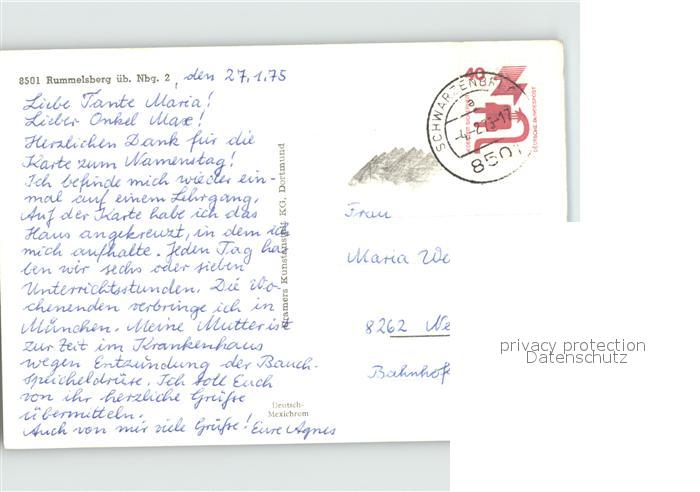 8501 Rummelsberg üb. Nbg. 2, den 27.1.75
Liebe Tante Maria!
Lieber Onkel Max!
Herzlichen Dank für die
Karte zum Namenstag!
Ich befinde mich wieder ein-
mal auf einem Lehrgang.
Auf der Karte habe ich das
Haus angekreuzt, in dem ich
mich aufhalte. Jeden Tag ha-
ben wir sechs oder sieben
Unterrichtsstunden. Die Wo-
chenenden verbringe ich in
München. Meine Mutter ist
zur Zeit im Krankenhaus
wegen Entzündung der Bauch-
speicheldrüse. Ich soll Euch
von ihr herzliche Grüße
übermitteln.
Auch von mir viele Grüße! Eure Agnes
Kramers Kunstanstalt KG, Dortmund
Deutsch-
Mexichrom
40
DEUTSCHE BUNDESPOST
8501
Frau
Maria We
8262 Ne
Bahnhof
privacy protection
Datenschutz